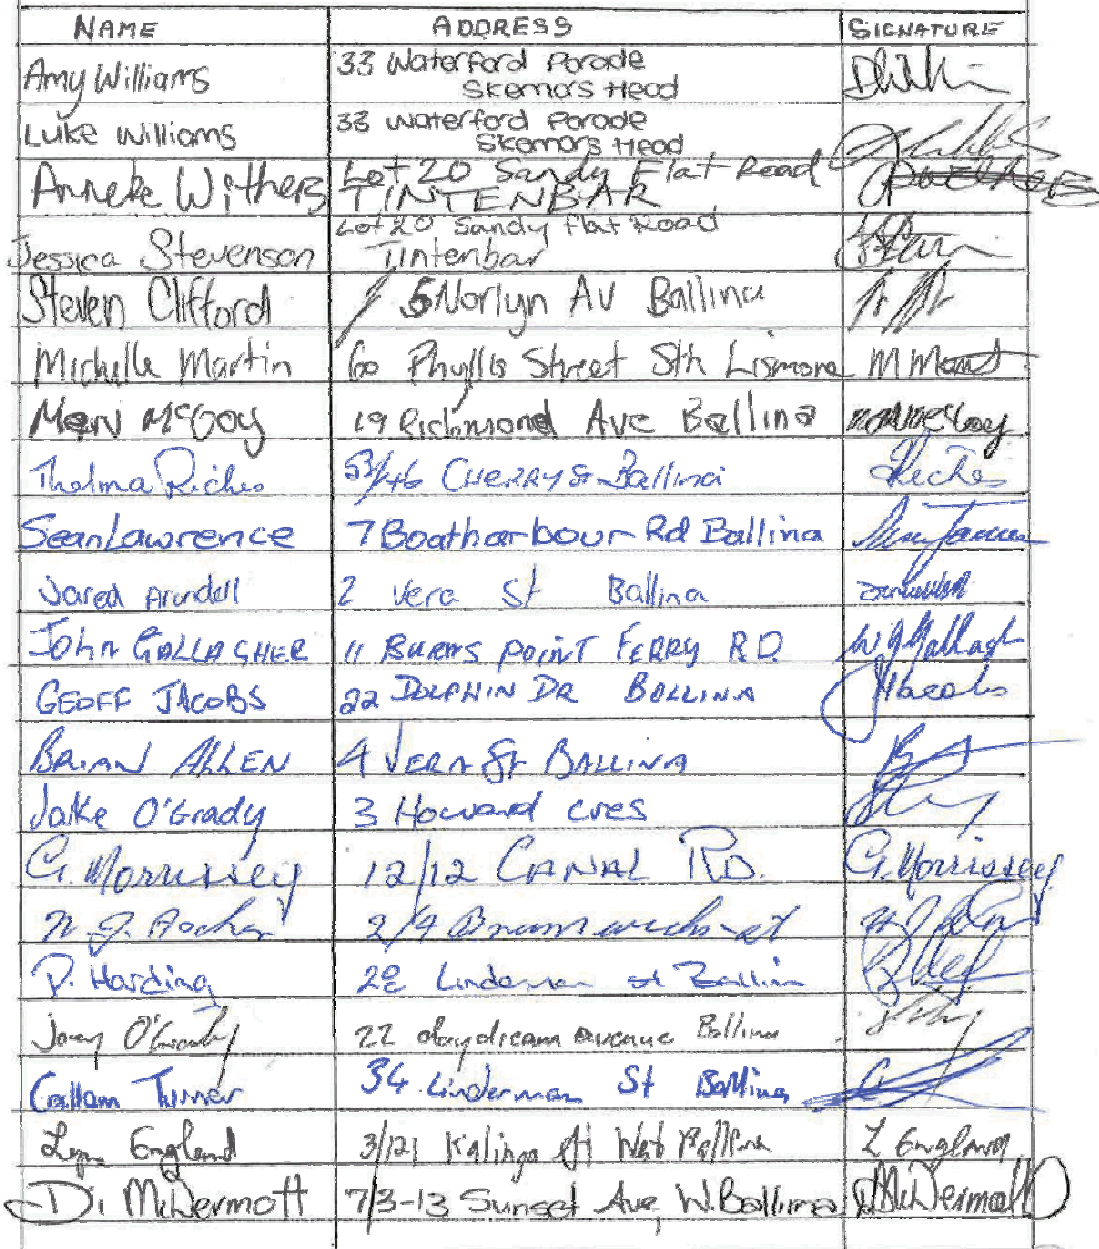 NAME ADDRESS SIGNATURE
Amy Williams 33 Waterford Parade
Skennars Head
Luke Williams 33 Waterford Parade
Skennars Head
Anneke Withers Lot 20 Sandy Flat Road
TINTENBAR
Jessica Stevenson Lot 20 Sandy flat Road
Tintenbar
Steven Clifford 5 Norlyn Av Ballina
Michelle Martin 60 Phyllis Street Sth Lismore M Martin
Merv McCoy 19 Richmond Ave Ballina
Thelma Riches 53/46 CHERRY St Ballina Riches
Sean Lawrence 7 Boatharbour Rd Ballina
Jared Arundell 2 Vera St Ballina
JOHN GALLAGHER 11 BURNS POINT FERRY RD. Gallagh
GEOFF JACOBS 22 DOLPHIN DR BALLINA Jacobs
BRIAN ALLEN 4 VERA St BALLINA
Jake O'Grady 3 Howard cres
G. Morrissey 12/12 CANAL RD. G. Morrissey
2/4
P. Harding Lindeman st Ballina
O'Grady 22 daydream avenue Ballina
Callum Turner 34 Linderman St Ballina
Lyn England 3/121 Kalinga St West Ballina L England
Di McDermott 7/3-13 Sunset Ave, W. Ballina D McDermott